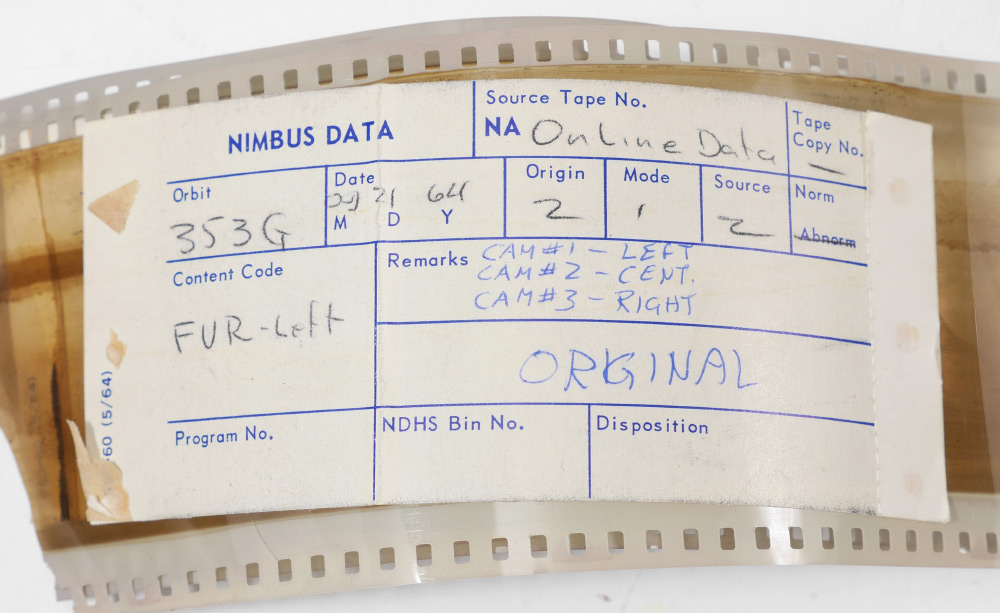 NIMBUS DATA
Source Tape No.
NA Online Data
Tape
Copy No.
—
Orbit
353G
Date
21 64
M D Y
Origin
2
Mode
1
Source
2
Norm
Abnorm
Content Code
FUR-Left
Remarks
CAM#1 - LEFT
CAM#2 - CENT.
CAM#3 - RIGHT
ORIGINAL
60 (5/64)
Program No.
NDHS Bin No.
Disposition